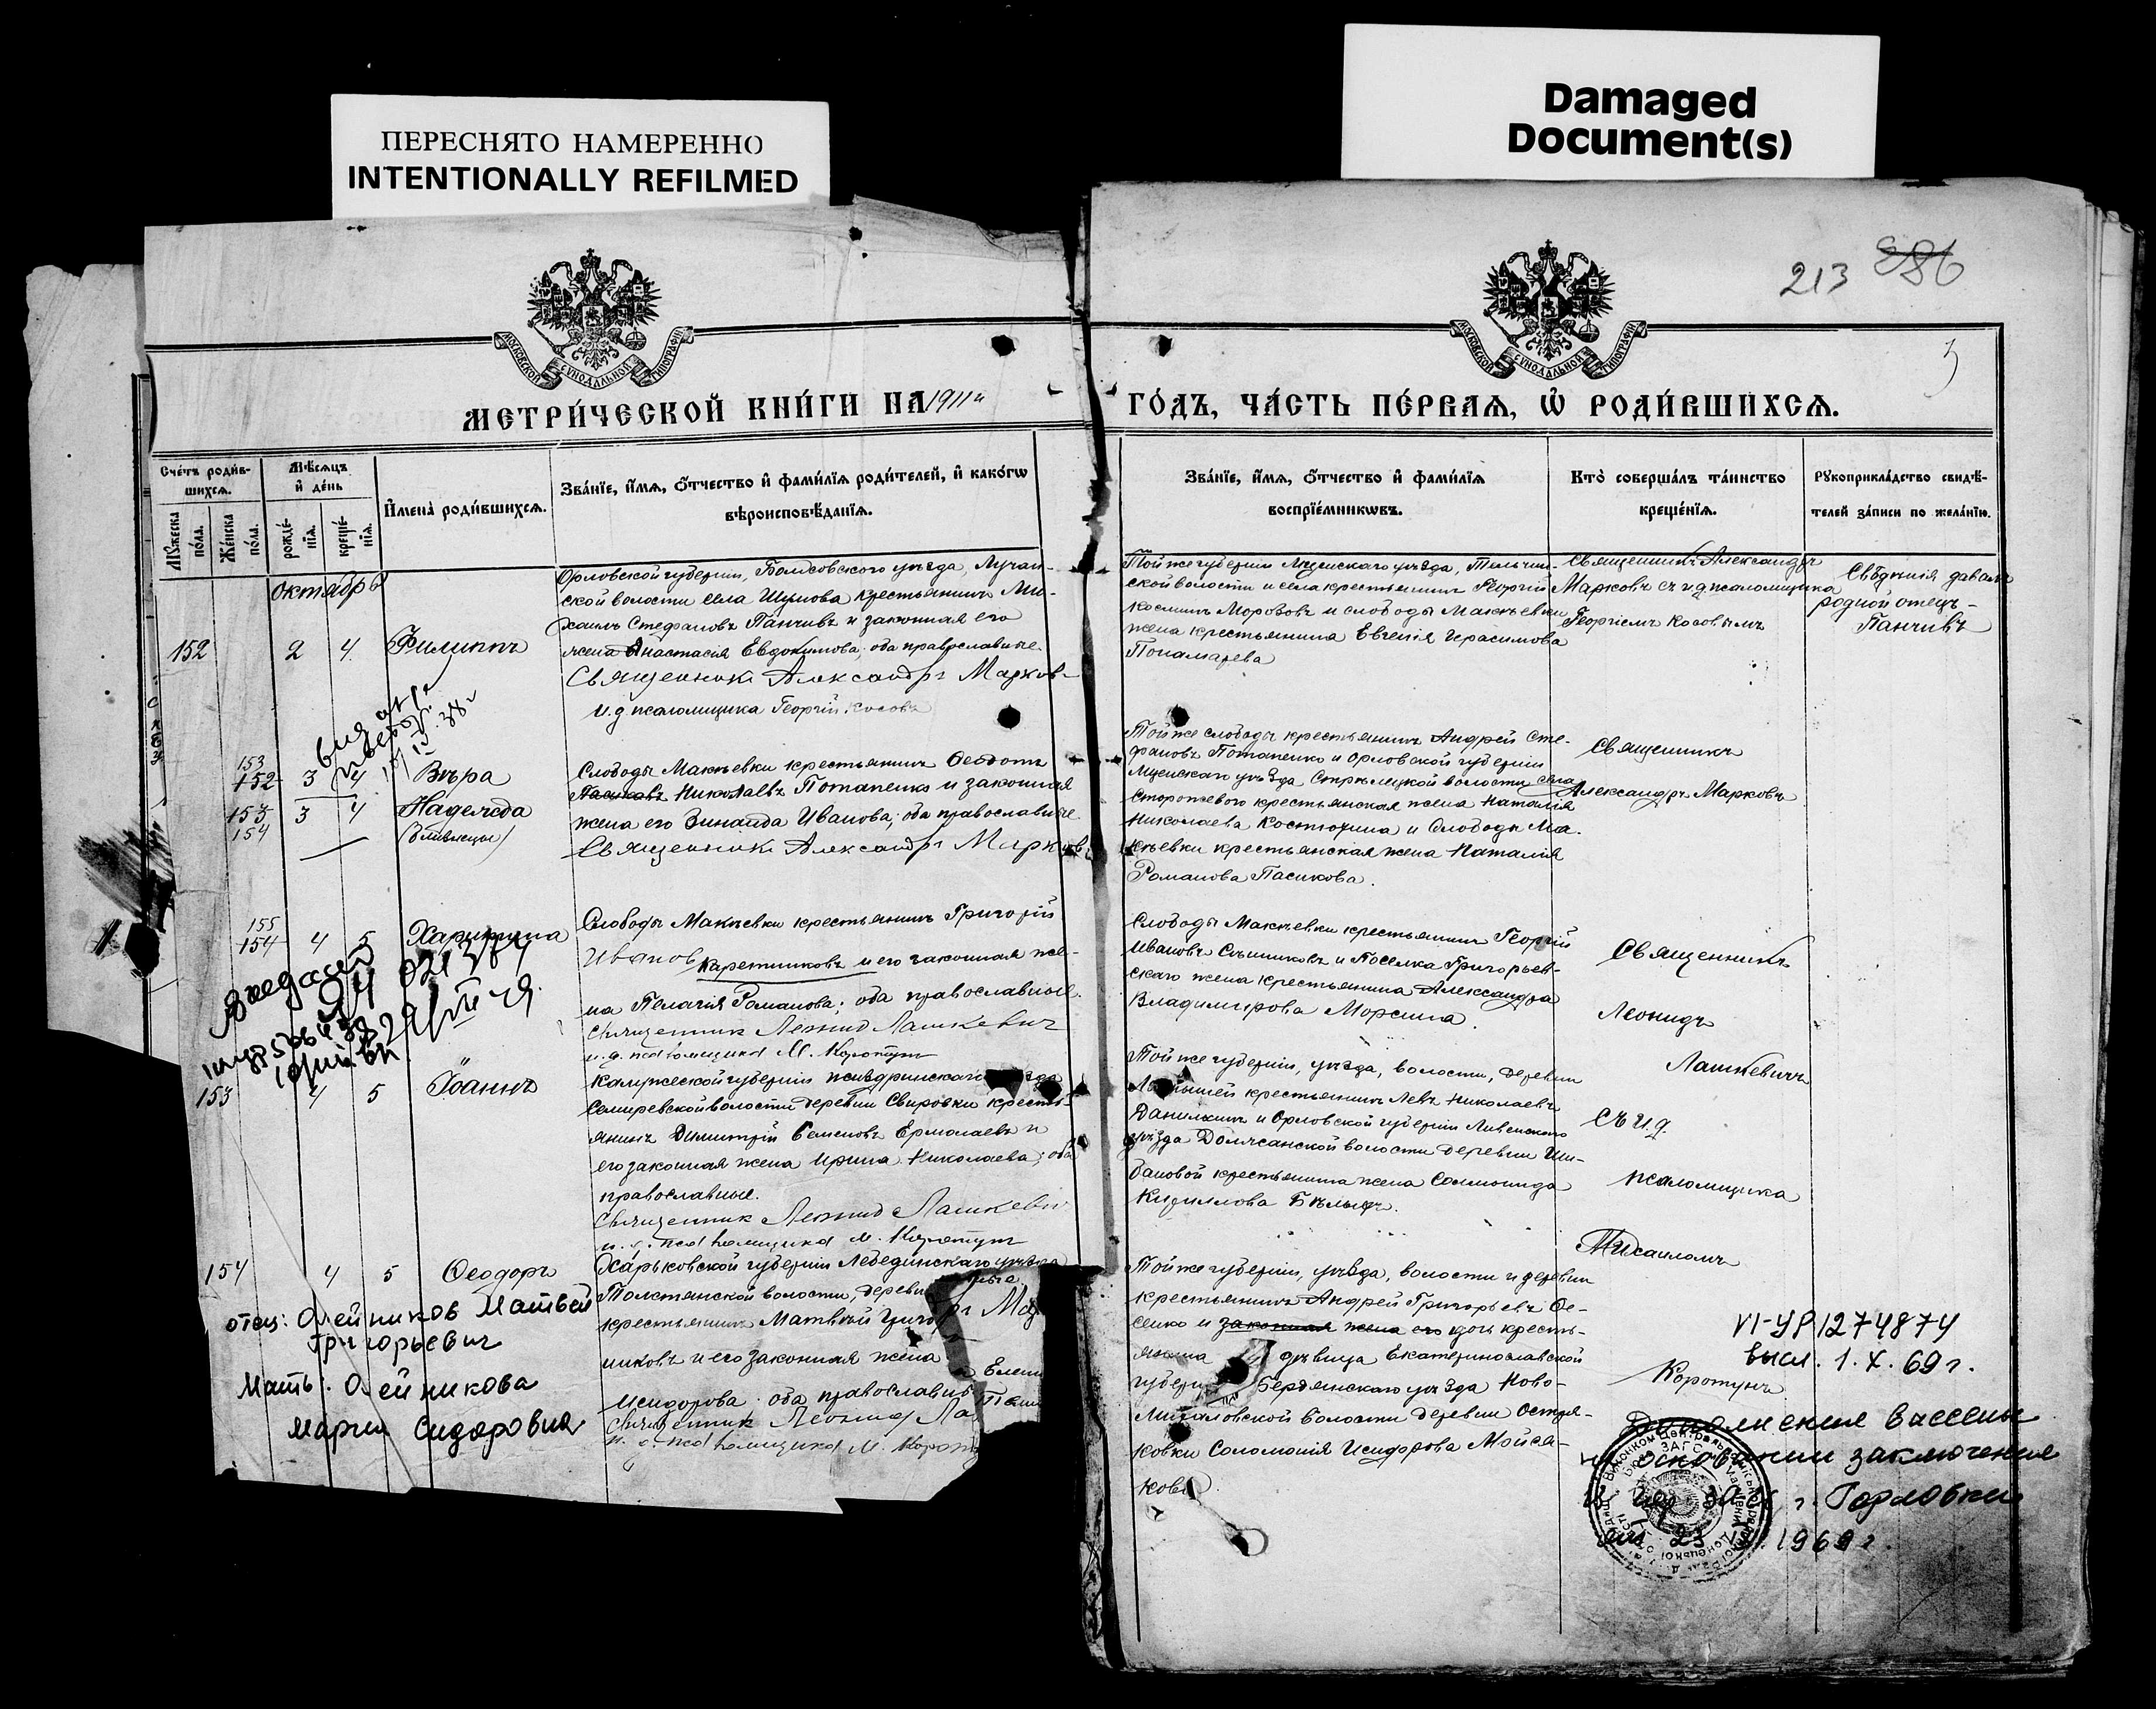 ПЕРЕСНЯТО НАМЕРЕННО
INTENTIONALLY REFILMED
Damaged
Document(s)
213 886
МОСКОВСКОЙ СѴНОДАЛЬНОЙ ТИПОГРАФІИ
МОСКОВСКОЙ СѴНОДАЛЬНОЙ ТИПОГРАФІИ
МЕТРИ́ЧЕСКОЙ КНИ́ГИ НА 1911 й
ГО́ДЪ, ЧА́СТЬ ПЕ́РВАѦ, Ѡ҆ РОДИ́ВШИХСѦ.
Сче́тъ роди́в-
шихсѧ.
Мꙋ́жеска по́ла.
Же́нска по́ла.
Мѣ́сѧцъ
и҆ де́нь
рожде́-
нїѧ.
креще́-
нїѧ.
И҆мена̀ роди́вшихсѧ.
Зва́нїе, и҆́мѧ, ѻ҆́тчество и҆ фами́лїѧ роди́телей, и҆ како́гѡ
вѣроисповѣ́данїѧ.
Зва́нїе, и҆́мѧ, ѻ҆́тчество и҆ фами́лїѧ
воспрїе́мникѡвъ.
Кто̀ соверша́лъ та́инство
креще́нїѧ.
Рꙋкоприкла́дство свидѣ́-
телей за́писи по жела́нїю.
Октябрь
152 2 4 Филиппъ
Орловской губерніи, Болховского уѣзда, Лучан-
ской волости села Шумова крестьянинъ Ми-
хаилъ Стефановъ Панчивъ и законная его
жена Анастасія Евдокимова; оба православные.
Священникъ Александръ Марковъ
и.д. псаломщика Георгій Косовъ
Той же губерніи Мценскаго уѣзда, Тельчин-
ской волости и села крестьянинъ Георгій
Косминъ Морововъ и слободы Макѣевки
жена крестьянина Евгенія Герасимова
Понамарева
Священникъ Александръ
Марковъ съ и.д. псаломщика
Георгіемъ Косовымъ
Свѣденія давалъ
родной отецъ -
Панчивъ
153
152 3 4 Вѣра
153 3 4 Надежда
154 (близнецы)
Слободы Макѣевки крестьянинъ Ѳеодотъ
Пасиковъ Николаевъ Потапенко и законная
жена его Зинаида Иванова; оба православные.
Священникъ Александръ Марковъ
Той же слободы крестьянинъ Андрей Сте-
фановъ Потапенко и Орловской губерніи
Мценскаго уѣзда, Стрѣлецкой волости села
Сторожевого крестьянская жена Наталія
Николаева Костюхина и Слободы Ма-
кѣевки крестьянская жена Наталія
Романова Пасикова.
Священникъ
Александръ Марковъ
155
154 4 5 Харитина
Слободы Макѣевки крестьянинъ Григорій
Ивановъ Каретниковъ и его законная же-
на Пелагія Романова; оба православные.
Священник Леонид Лашкевич
и.д. псаломщика М. Коротун
Слободы Макѣевки крестьянинъ Георгій
Ивановъ и Поселка Григорьев-
скаго жена крестьянина Александра
Владимирова Морсина.
Священникъ
Леонидъ
Лашкевичъ
съ и.д.
псаломщика
Михаиломъ
Коротунъ
153 4 5 Іоаннъ
Калужской губерніи Жиздринскаго уѣзда
Семиревской волости деревни Свировки кресть-
янинъ Димитрій Семеновъ Ермолаевъ и
его законная жена Ирина Николаева; оба
православные.
Священник Леонид Лашкевич
и.д. псаломщика М. Коротун
Той же губерніи, уѣзда, волости, деревни
крестьянинъ Левъ Николаевъ
Данилкинъ и Орловской губерніи Ливенскаго
уѣзда Должанской волости деревни Ши-
бановой крестьянина жена Соломонида
Кириллова Бѣлыхъ.
154 4 5 Ѳеодоръ
Харьковской губерніи Лебединскаго уѣзда
Толстянской волости, деревни
крестьянинъ Матвѣй Григо
никовъ и его законная жена
Исидорова; оба православные
Священник Леонид Ла
и.д. псаломщика М. Корот
Той же губерніи, уѣзда, волости и деревни
крестьянинъ Андрей Григорьевъ Ѳе-
сенко и законная жена его дочь кресть-
янина дѣвица Екатеринославской
губерніи Бердянскаго уѣзда Ново-
Михайловской волости деревни Остри-
ковки Соломонія Исидорова Мойсе-
кова.
отец: Олейников Матвей
Григорьевич
Мать: Олейникова
Мария Сидоровна
VI-УР 1274874
высл. 1. X. 69 г.
Дополнения внесены
на основании заключения
г. Горловки
от 23 1969 г.